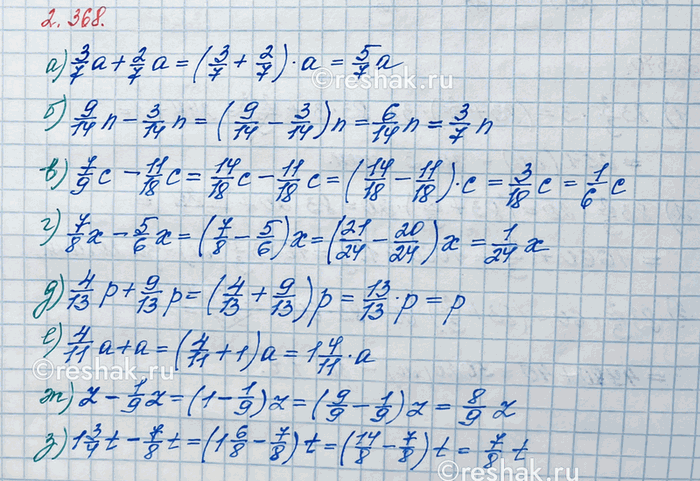 2.368.
а) 3/7 a + 2/7 a = (3/7 + 2/7) · a = 5/7 a
б) 9/14 n − 3/14 n = (9/14 − 3/14) n = 6/14 n = 3/7 n
в) 7/9 c − 11/18 c = 14/18 c − 11/18 c = (14/18 − 11/18) · c = 3/18 c = 1/6 c
г) 7/8 x − 5/6 x = (7/8 − 5/6) x = (21/24 − 20/24) x = 1/24 x
д) 4/13 p + 9/13 p = (4/13 + 9/13) p = 13/13 · p = p
е) 4/11 a + a = (4/11 + 1) a = 1 4/11 · a
ж) z − 1/9 z = (1 − 1/9) z = (9/9 − 1/9) z = 8/9 z
з) 1 3/4 t − 7/8 t = (1 6/8 − 7/8) t = (14/8 − 7/8) t = 7/8 t
reshak.ru